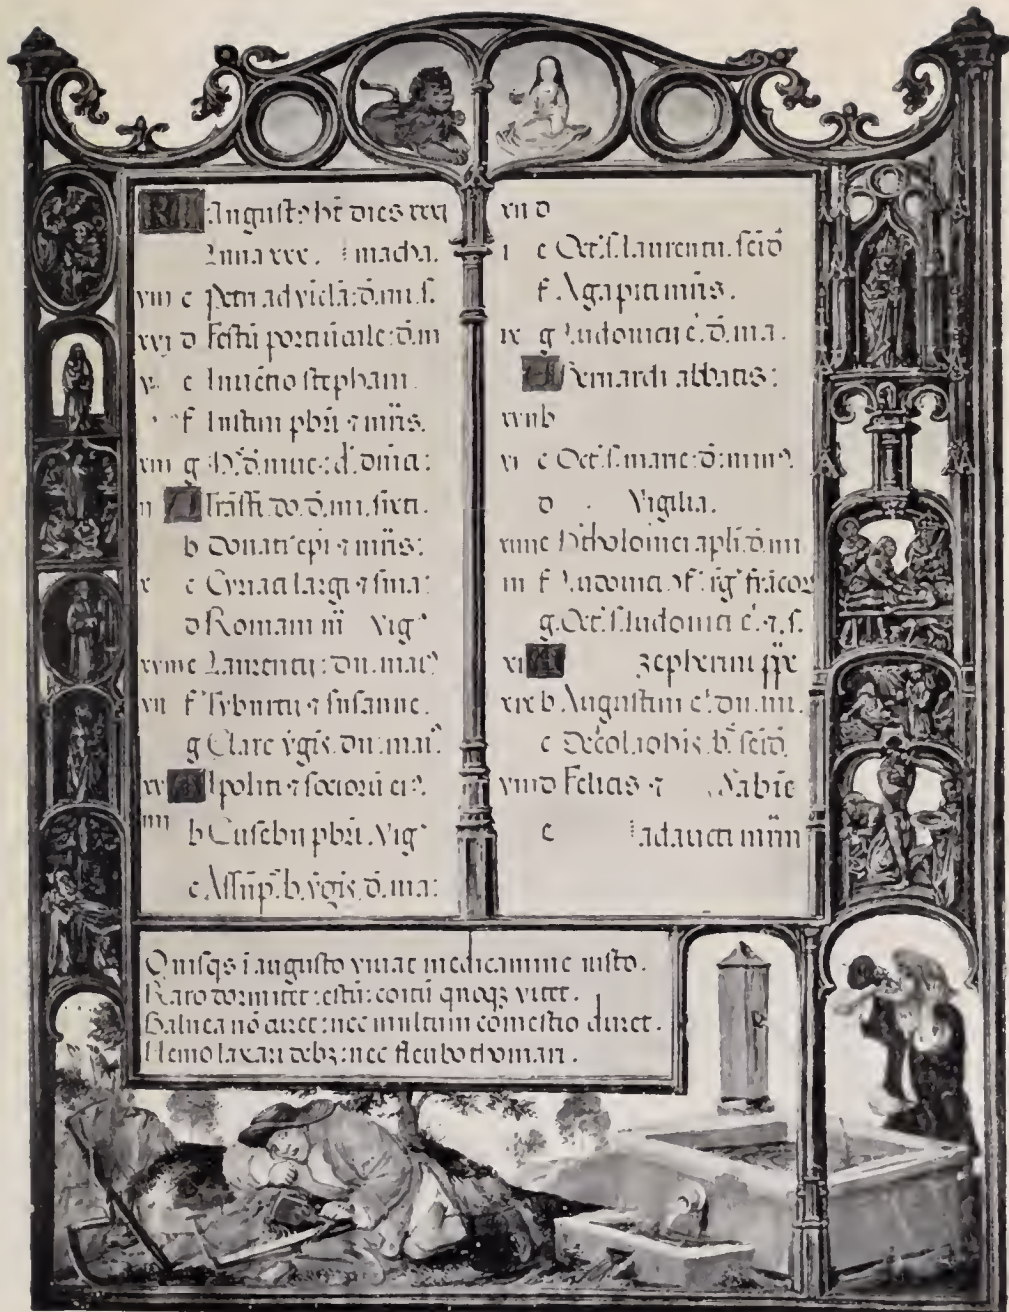 Kl August? ht dies xxxi
Luna xxx. macha.
viii c petri ad vicla: d. mi. s.
xvi d Festū portiūcule: d. m
v e Inuētio stephani.
f Iustini pbri ⁊ mr̄is.
xiii g
ii A sixti.
b donati epi ⁊ mr̄is:
x c Cyriaci largi ⁊ sma:
d Romani m̄ Vig
xviii e Laurentii: du. mai⁹
vii f Tyburtii ⁊ susanne.
g Clare v̄gis. du. mai⁹
xv A Ipoliti ⁊ socioru ei⁹.
iiii b Eusebii pbri. Vig
c Assūp. b. v̄gis. d. ma:
xii d
i e Oct. s. laurentii. scīd
f Agapiti mr̄is.
ix g Ludouici e. d. ma.
A Bernardi abbatis:
xvii b
vi c Oct. s. marie: d: min⁹.
d . Vigilia.
xiiii e Btholomei apli. d. mi
iii f Ludouici ɔf. rg. fracor
g. Oct. s. ludouici e. ⁊. s.
xi A zepherini ppe
xix b Augustini e. du. mi.
c Decol. iohis. b. scīd.
viii d Felicis ⁊
e adaucti mr̄m
Quisqs ī augusto viuat medicamine iusto.
Raro dormitet: estū: coitū quoqꝫ vitet.
Balnea nō curet: nec multum comestio duret.
Nemo laxari debꝫ: nec fleubothomari.